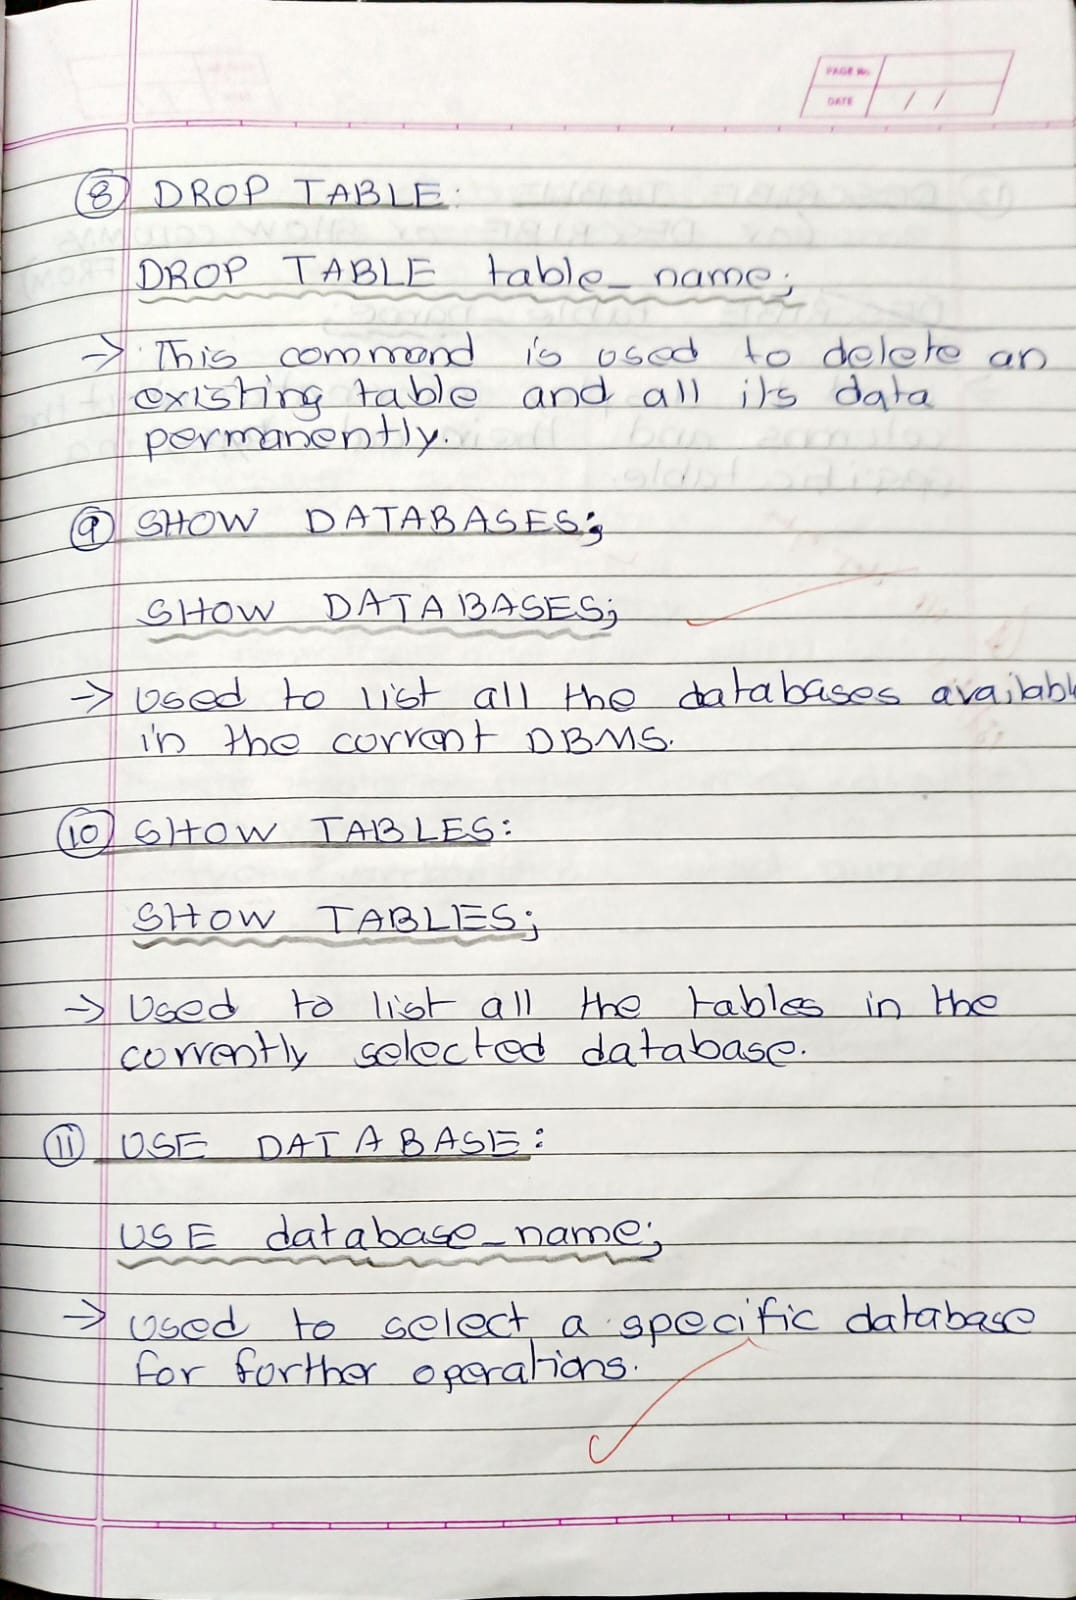 PAGE No.
DATE / /
⑧ DROP TABLE:
DROP TABLE table_name;
→ This command is used to delete an
existing table and all its data
permanently.
⑨ SHOW DATABASES;
SHOW DATABASES;
→ Used to list all the databases availabl
in the current DBMS.
⑩ SHOW TABLES:
SHOW TABLES;
→ Used to list all the tables in the
currently selected database.
⑪ USE DATABASE:
USE database_name;
→ Used to select a specific database
for further operations.